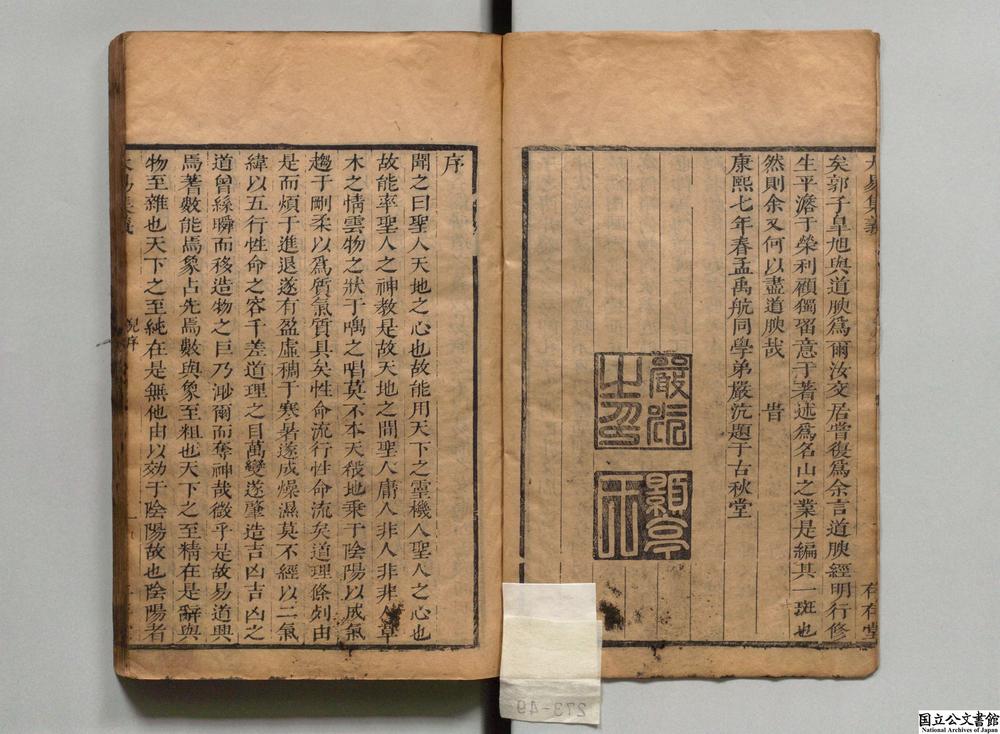 矣郭子皐旭與道腴爲爾汝交居嘗復爲余言道腴經明行修
生平澹于榮利顧獨留意于著述爲名山之業是編其一斑也
然則余又何以盡道腴哉 旹
康熙七年春孟禹航同學弟嚴沆題于古秋堂
嚴沆之印
顥亭
序
聞之曰聖人天地之心也故能用天下之靈機人聖人之心也
故能率聖人之神敎是故天地之間聖人庸人非人非非人草
木之情雲物之狀于喁之唱莫不本天殽地乗于陰陽以成氣
趨于剛柔以爲質氣質具矣性命流行性命流矣道理條刻由
是而煩于進退遂有盈虛稠于寒暑遂成燥濕莫不經以二氣
緯以五行性命之容千差道理之目萬變遂肇造吉凶吉凶之
道曾緜瞬而移造物之巨乃渺爾而奪神哉微乎是故易道興
焉著數能焉象占先焉數與象至粗也天下之至精在是辭與
物至雜也天下之至純在是無他由以効于陰陽故也陰陽者
大易集義
序
一
存存堂
273-49
国立公文書館
National Archives of Japan